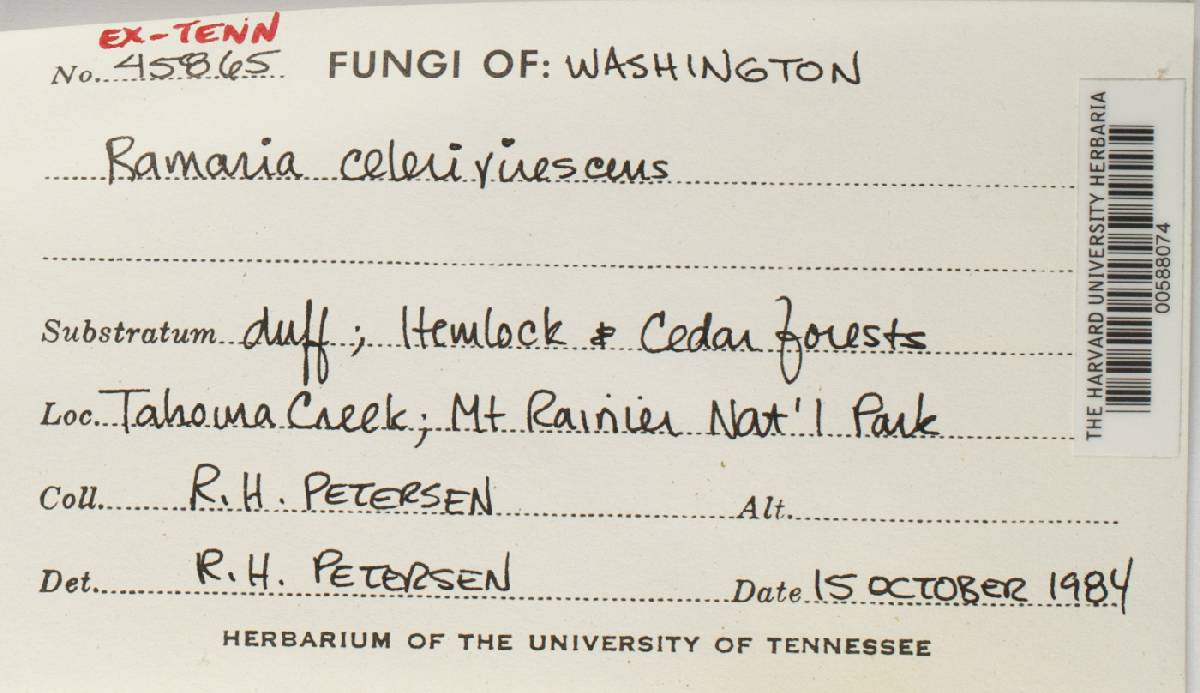 EX-TENN
No. 45865 FUNGI OF: WASHINGTON
Ramaria celerivirescens
Substratum duff; Hemlock & Cedar forests
Loc. Tahoma Creek; Mt Rainier Nat'l Park
Coll. R.H. PETERSEN Alt.
Det. R.H. PETERSEN Date 15 OCTOBER 1984
HERBARIUM OF THE UNIVERSITY OF TENNESSEE
THE HARVARD UNIVERSITY HERBARIA
00588074